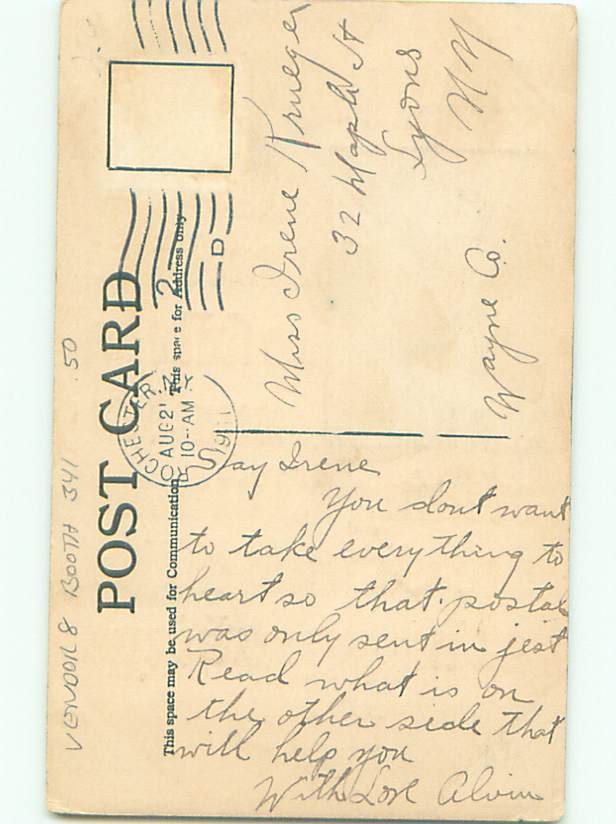 POST CARD
This space may be used for Communication
This space for Address only
ROCHESTER, N.Y.
AUG 21
10-AM
191
D
2
Miss Irene Krueger
32 Maple St
Lyons
N Y
Wayne Co.
Say Irene
You dont want
to take everything to
heart so that postal
was only sent in jest
Read what is on
the other side that
will help you
With Love Alvin
VENDOR 8 BOOTH 341 .50